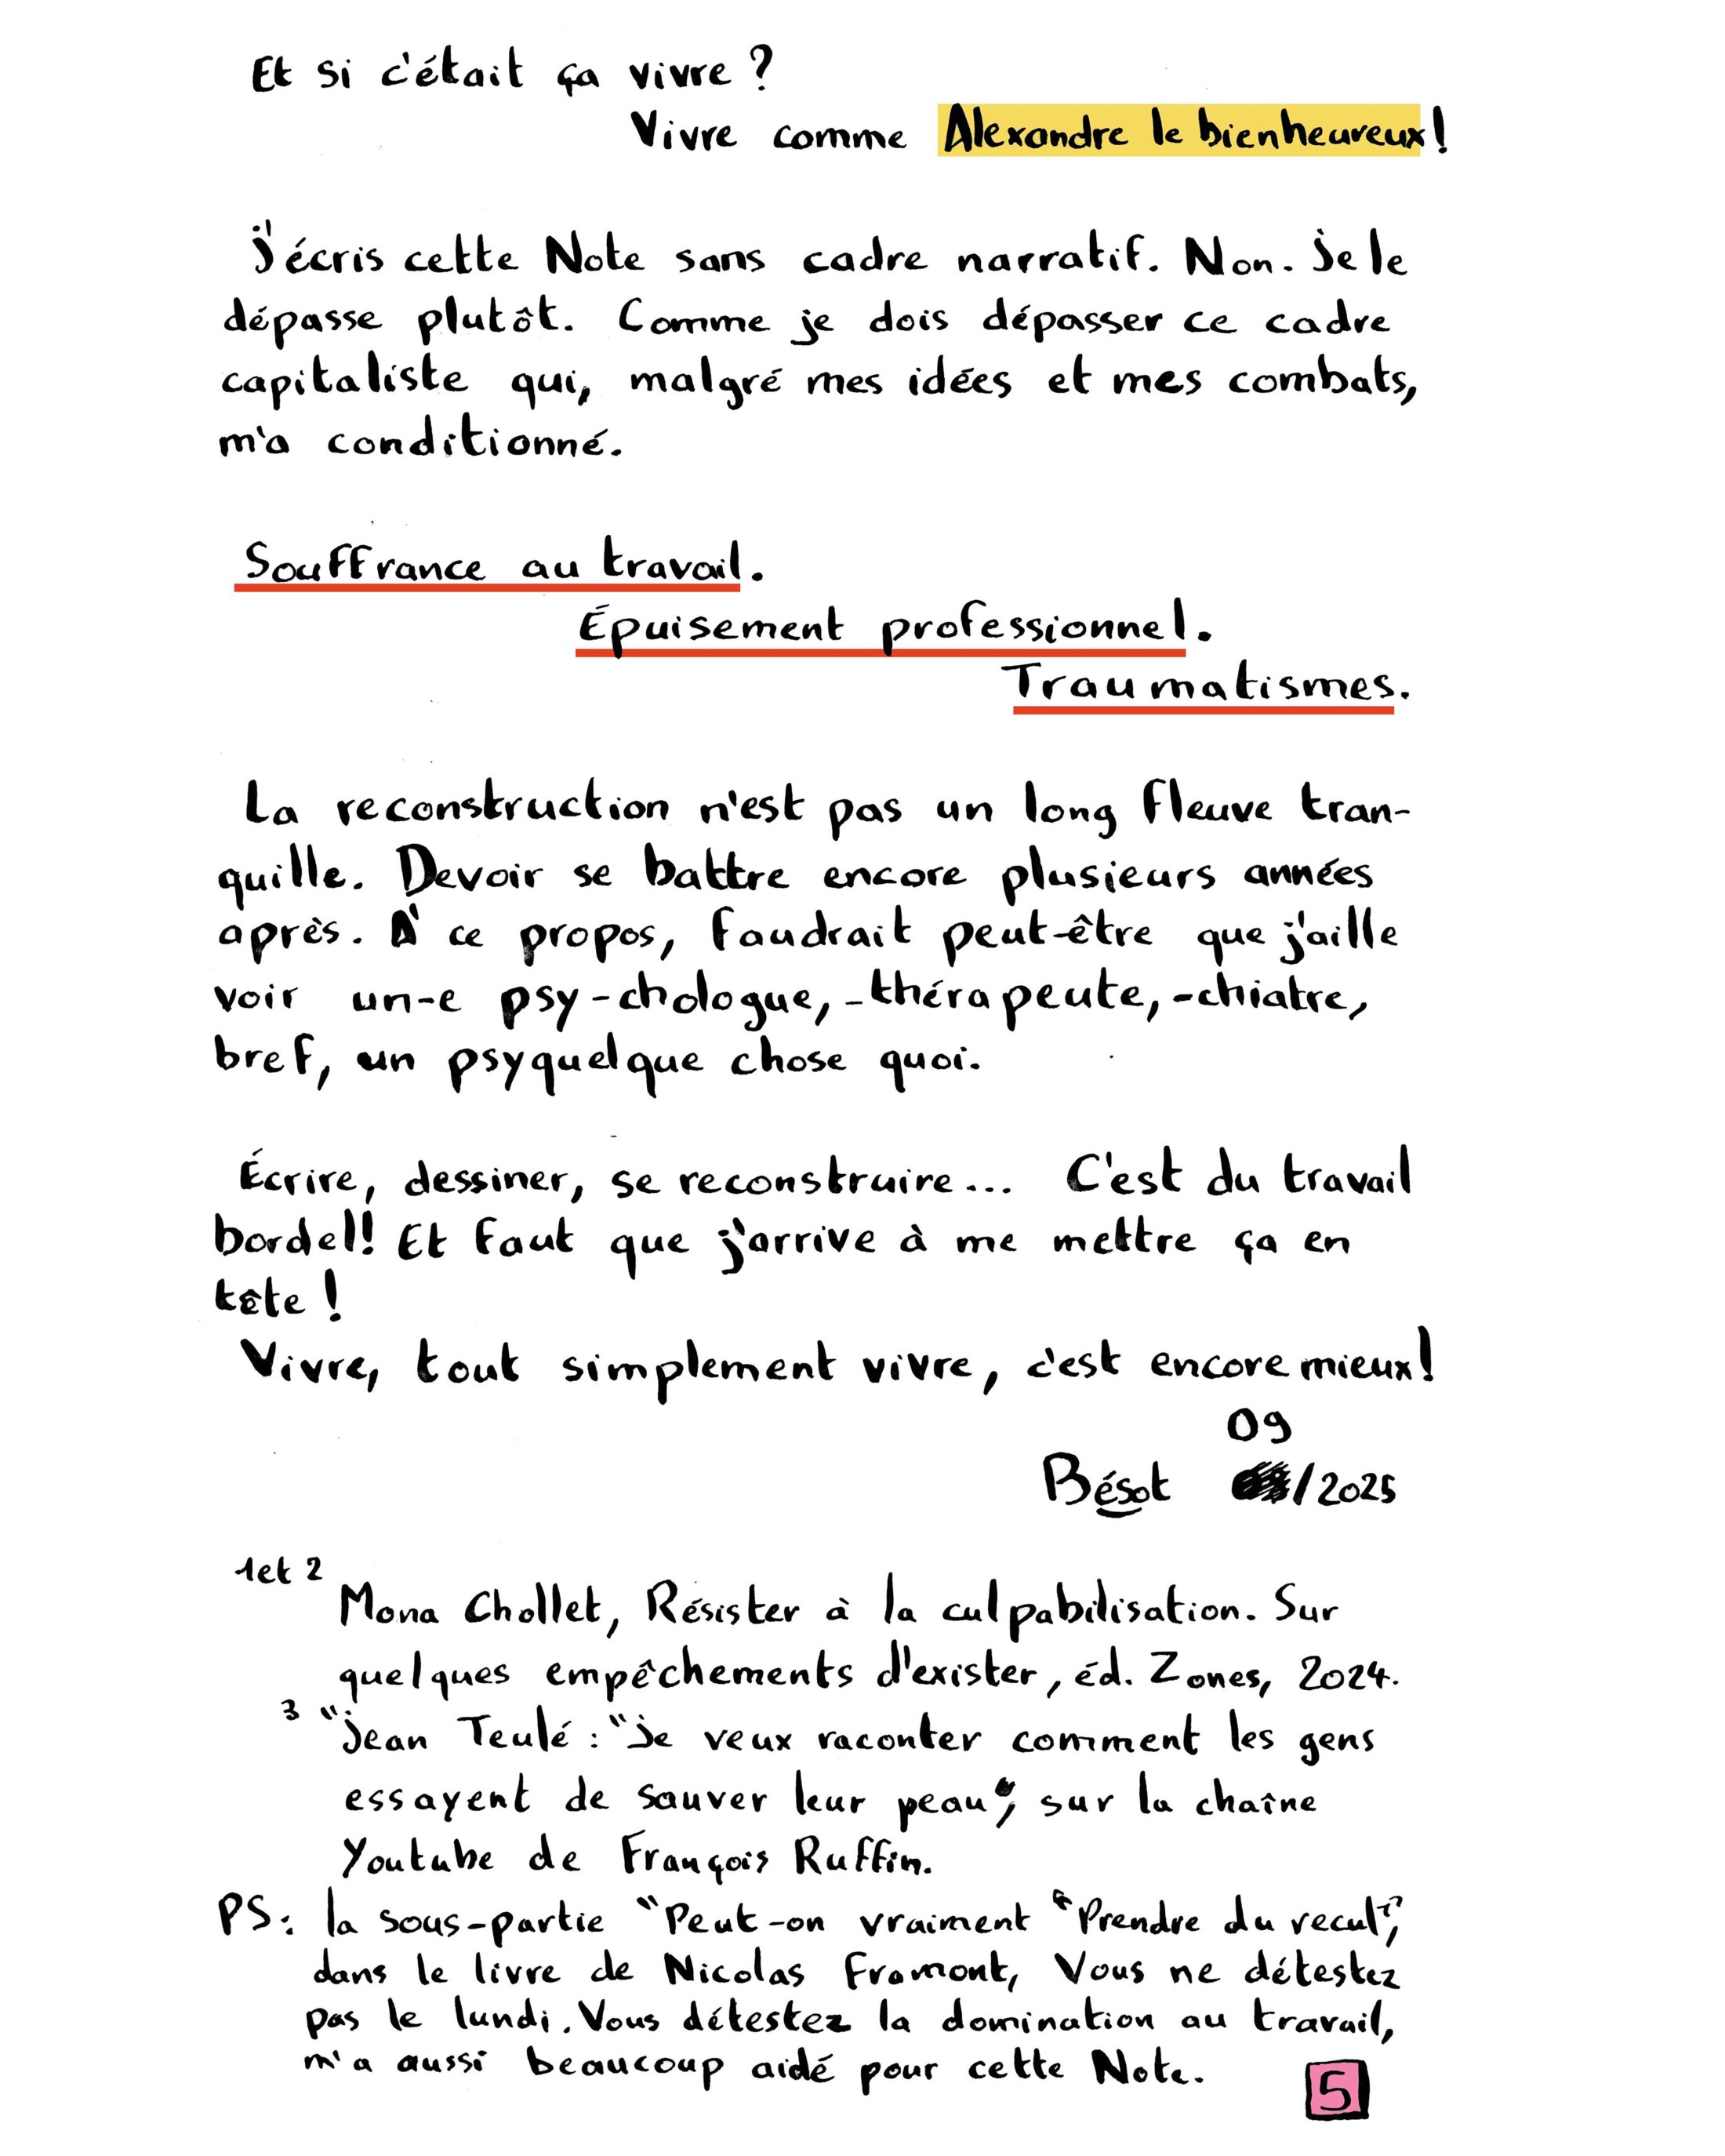 Et si c'était ça vivre ?
Vivre comme Alexandre le bienheureux !
J'écris cette Note sans cadre narratif. Non. Je le
dépasse plutôt. Comme je dois dépasser ce cadre
capitaliste qui, malgré mes idées et mes combats,
m'a conditionné.
Souffrance au travail.
Épuisement professionnel.
Traumatismes.
La reconstruction n'est pas un long fleuve tran-
quille. Devoir se battre encore plusieurs années
après. À ce propos, faudrait peut-être que j'aille
voir un-e psy-chologue, -thérapeute, -chiatre,
bref, un psyquelque chose quoi.
Écrire, dessiner, se reconstruire... C'est du travail
bordel ! Et faut que j'arrive à me mettre ça en
tête !
Vivre, tout simplement vivre, c'est encore mieux !
09
Bésot /2025
1 et 2
Mona Chollet, Résister à la culpabilisation. Sur
quelques empêchements d'exister, éd. Zones, 2024.
3 "Jean Teulé : "Je veux raconter comment les gens
essayent de sauver leur peau", sur la chaîne
Youtube de François Ruffin.
PS : la sous-partie "Peut-on vraiment "Prendre du recul"?",
dans le livre de Nicolas Framont, Vous ne détestez
pas le lundi. Vous détestez la domination au travail,
m'a aussi beaucoup aidé pour cette Note.
5